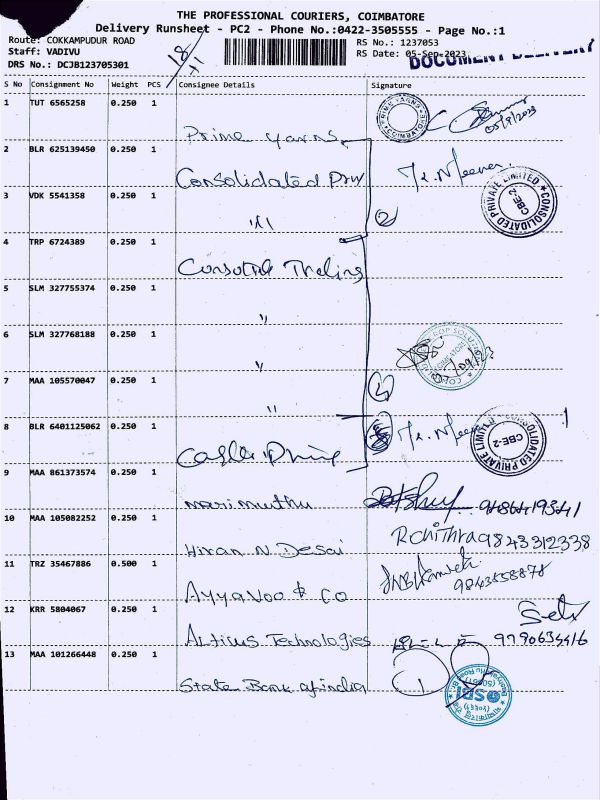 THE PROFESSIONAL COURIERS, COIMBATORE
Delivery Runsheet - PC2 - Phone No.:0422-3505555 - Page No.:1
Route: COKKAMPUDUR ROAD
RS No.: 1237053
Staff: VADIVU
RS Date: 05-Sep-2023
DRS No.: DCJB123705301
DOCUMENT DELIVERY
18/11
S No Consignment No Weight PCS Consignee Details Signature
1 TUT 6565258 0.250 1 Prime Yarns
PRIME YARNS COIMBATORE
05/9/2023
2 BLR 625139450 0.250 1 Consolidated
CONSOLIDATED PRIVATE LIMITED CBE-2
3 VDK 5541358 0.250 1 "
2
4 TRP 6724389 0.250 1
5 SLM 327755374 0.250 1 "
6 SLM 327768188 0.250 1 "
7 MAA 105570047 0.250 1 "
8 BLR 6401125062 0.250 1
CONSOLIDATED PRIVATE LIMITED CBE-2
9 MAA 861373574 0.250 1 Marimuthu
10 MAA 105082252 0.250 1 Hiran N Desai
9843312338
11 TRZ 35467886 0.500 1 Ayyavoo & Co
12 KRR 5804067 0.250 1 Alticus Technologies
9790634416
13 MAA 101266448 0.250 1 State Bank of India
SBI